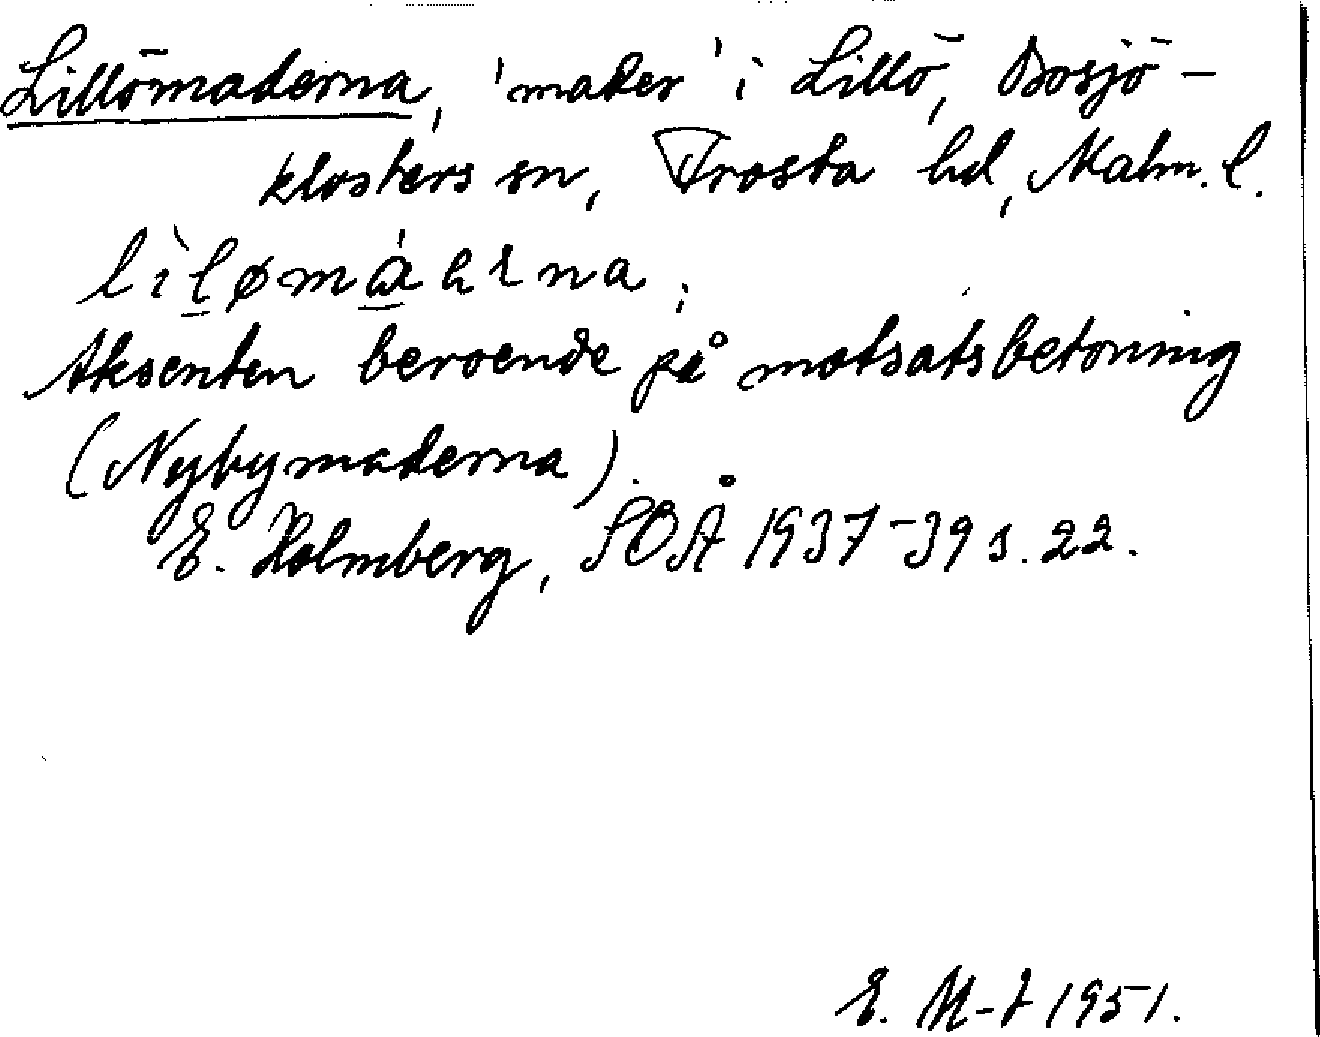 Lillömaderna, 'mader' i Lillö, Bosjö-
klosters sn, Frosta hd, Malm. l.
lìl̲ømá̲hɩna;
Aksenten beroende på motsatsbetoning
(Nybymaderna).
E. Holmberg, SOÅ 1937-39 s. 22.
E. M-J 1951.